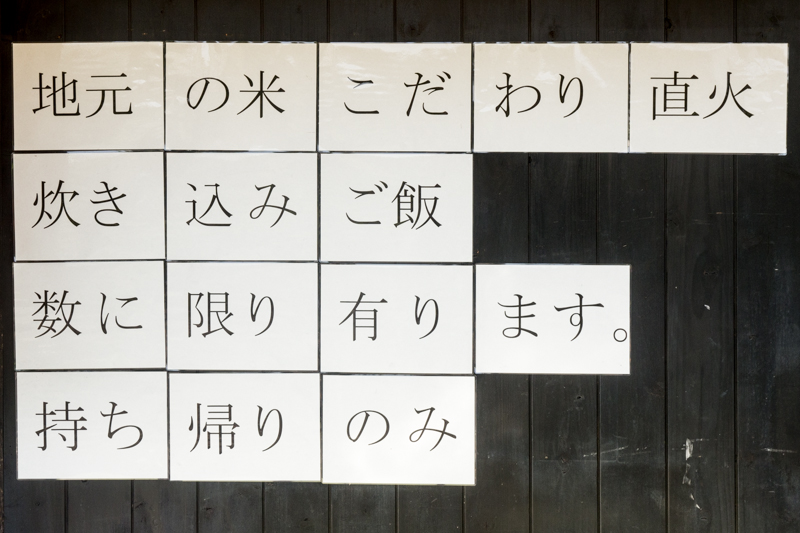 地元の米こだわり直火
炊き込みご飯
数に限り有ります。
持ち帰りのみ